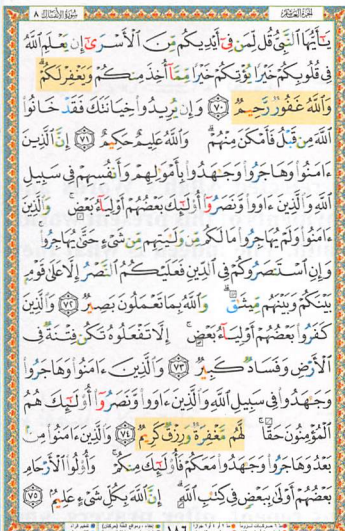 سورة الأنفال ٨
الجزء العاشر
يَٰٓأَيُّهَا ٱلنَّبِيُّ قُل لِّمَن فِىٓ أَيْدِيكُم مِّنَ ٱلْأَسْرَىٰٓ إِن يَعْلَمِ ٱللَّهُ
فِى قُلُوبِكُمْ خَيْرًا يُؤْتِكُمْ خَيْرًا مِّمَّآ أُخِذَ مِنكُمْ وَيَغْفِرْ لَكُمْ
وَٱللَّهُ غَفُورٌ رَّحِيمٌ ٧٠ وَإِن يُرِيدُوا۟ خِيَانَتَكَ فَقَدْ خَانُوا۟
ٱللَّهَ مِن قَبْلُ فَأَمْكَنَ مِنْهُمْ وَٱللَّهُ عَلِيمٌ حَكِيمٌ ٧١ إِنَّ ٱلَّذِينَ
ءَامَنُوا۟ وَهَاجَرُوا۟ وَجَٰهَدُوا۟ بِأَمْوَٰلِهِمْ وَأَنفُسِهِمْ فِى سَبِيلِ
ٱللَّهِ وَٱلَّذِينَ ءَاوَوا۟ وَّنَصَرُوٓا۟ أُو۟لَٰٓئِكَ بَعْضُهُمْ أَوْلِيَآءُ بَعْضٍ وَٱلَّذِينَ
ءَامَنُوا۟ وَلَمْ يُهَاجِرُوا۟ مَا لَكُم مِّن وَلَٰيَتِهِم مِّن شَىْءٍ حَتَّىٰ يُهَاجِرُوا۟
وَإِنِ ٱسْتَنصَرُوكُمْ فِى ٱلدِّينِ فَعَلَيْكُمُ ٱلنَّصْرُ إِلَّا عَلَىٰ قَوْمٍۭ
بَيْنَكُمْ وَبَيْنَهُم مِّيثَٰقٌ وَٱللَّهُ بِمَا تَعْمَلُونَ بَصِيرٌ ٧٢ وَٱلَّذِينَ
كَفَرُوا۟ بَعْضُهُمْ أَوْلِيَآءُ بَعْضٍ إِلَّا تَفْعَلُوهُ تَكُن فِتْنَةٌ فِى
ٱلْأَرْضِ وَفَسَادٌ كَبِيرٌ ٧٣ وَٱلَّذِينَ ءَامَنُوا۟ وَهَاجَرُوا۟
وَجَٰهَدُوا۟ فِى سَبِيلِ ٱللَّهِ وَٱلَّذِينَ ءَاوَوا۟ وَّنَصَرُوٓا۟ أُو۟لَٰٓئِكَ هُمُ
ٱلْمُؤْمِنُونَ حَقًّا لَّهُم مَّغْفِرَةٌ وَرِزْقٌ كَرِيمٌ ٧٤ وَٱلَّذِينَ ءَامَنُوا۟ مِنۢ
بَعْدُ وَهَاجَرُوا۟ وَجَٰهَدُوا۟ مَعَكُمْ فَأُو۟لَٰٓئِكَ مِنكُمْ وَأُو۟لُوا۟ ٱلْأَرْحَامِ
بَعْضُهُمْ أَوْلَىٰ بِبَعْضٍ فِى كِتَٰبِ ٱللَّهِ إِنَّ ٱللَّهَ بِكُلِّ شَىْءٍ عَلِيمٌۢ ٧٥
١٨٦